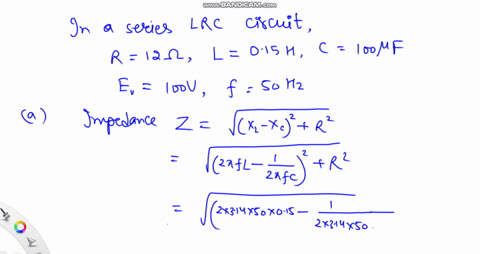 www.BANDICAM.com
In a series LRC circuit,
R = 12Ω, L = 0.15 H, C = 100 MF
Ev = 100V, f = 50 Hz
(a) Impedance Z = √((XL-Xc)² + R²)
= √((2πfL - 1/2πfC)² + R²)
= √((2×3.14×50×0.15 - 1/2×3.14×50.